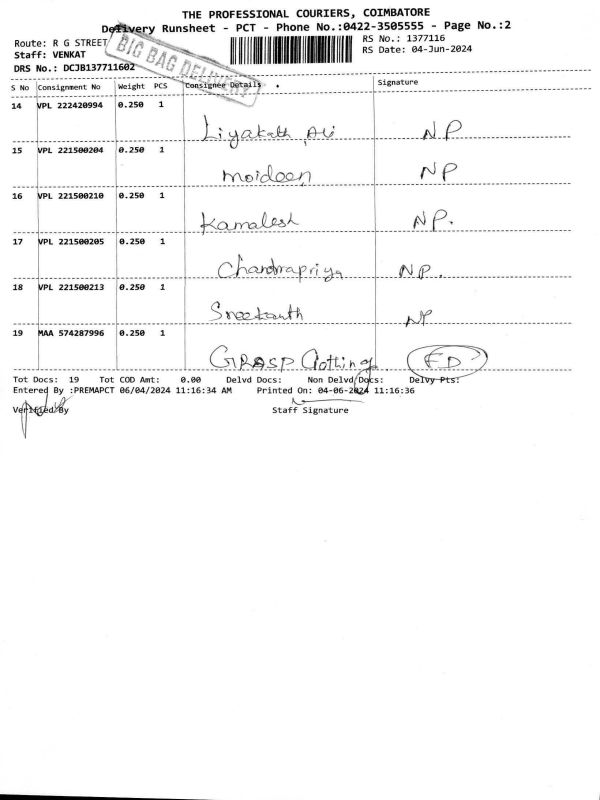 THE PROFESSIONAL COURIERS, COIMBATORE
Delivery Runsheet - PCT - Phone No.:0422-3505555 - Page No.:2
Route: R G STREET
RS No.: 1377116
Staff: VENKAT
RS Date: 04-Jun-2024
DRS No.: DCJB137711602
BIG BAG DELIVERY
S No Consignment No Weight PCS Consignee Details Signature
14 VPL 222420994 0.250 1
Liyakath Ali NP
15 VPL 221500204 0.250 1
Moideen NP
16 VPL 221500210 0.250 1
Kamalesh NP.
17 VPL 221500205 0.250 1
Chandrapriya NP.
18 VPL 221500213 0.250 1
Sreekanth NP
19 MAA 574287996 0.250 1
GRASP Clothing FD
Tot Docs: 19 Tot COD Amt: 0.00 Delvd Docs: Non Delvd/Docs: Delvy Pts:
Entered By :PREMAPCT 06/04/2024 11:16:34 AM Printed On: 04-06-2024 11:16:36
Verified By Staff Signature